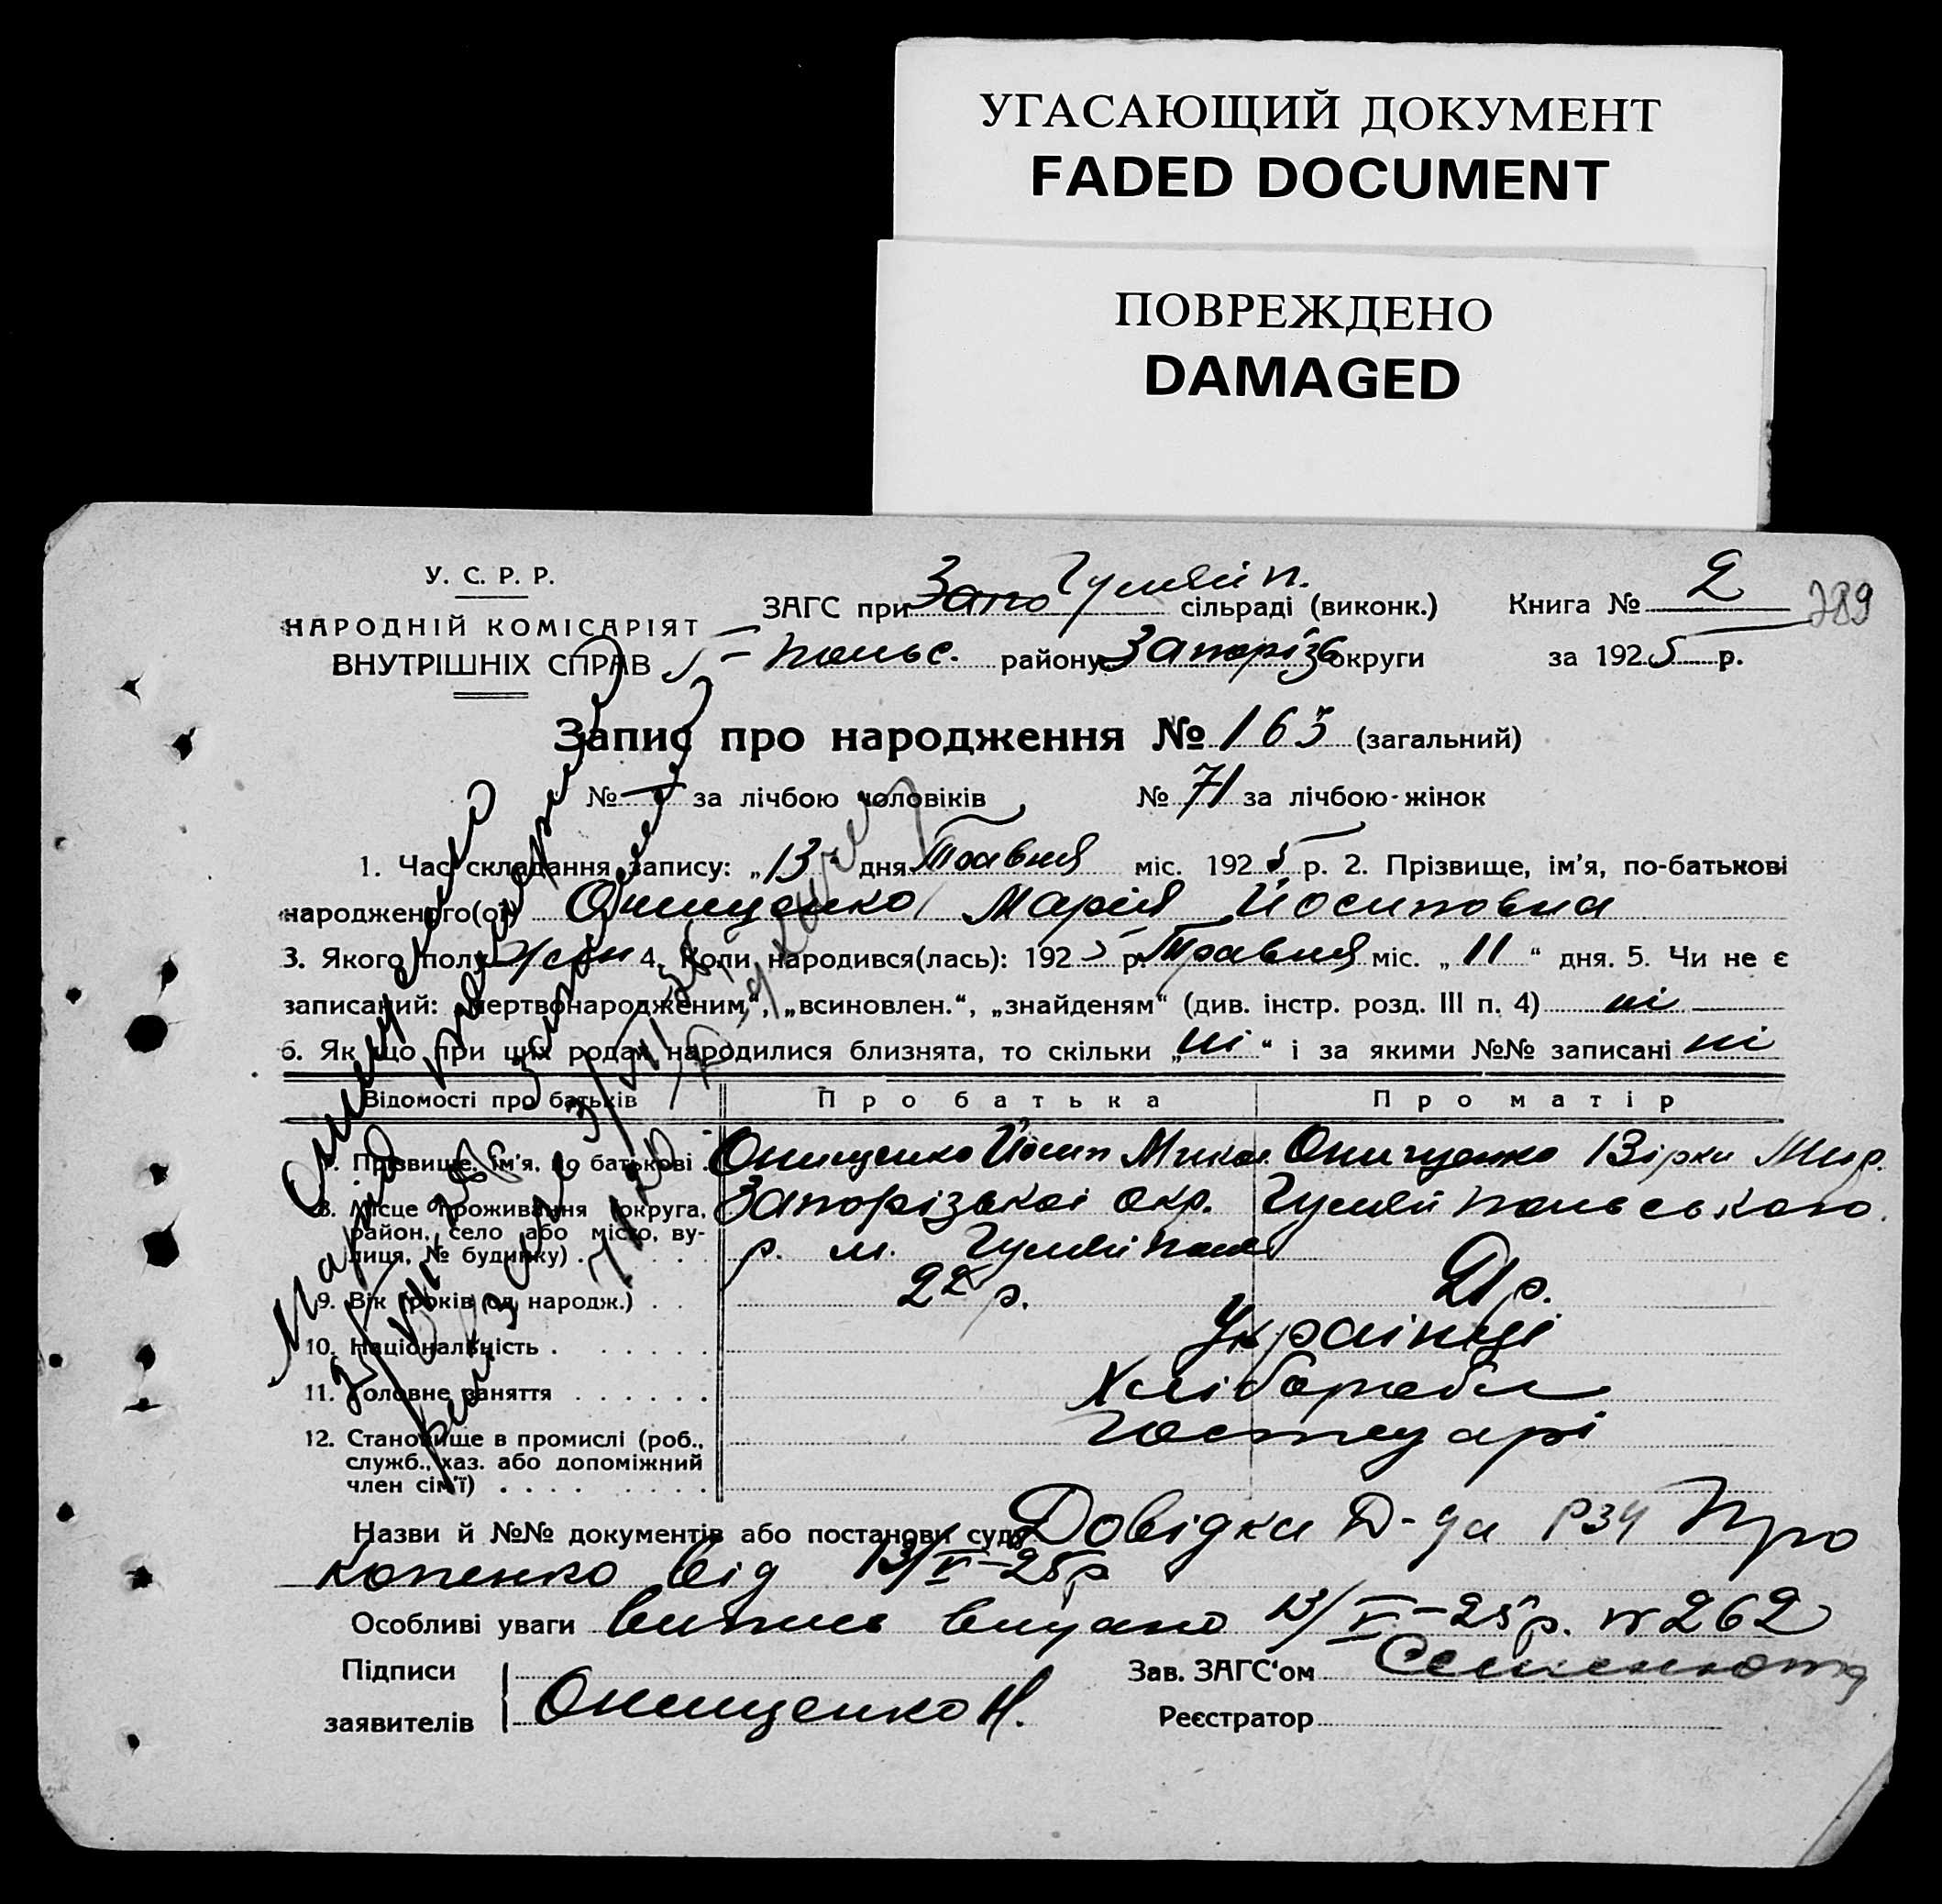 УГАСАЮЩИЙ ДОКУМЕНТ
FADED DOCUMENT
ПОВРЕЖДЕНО
DAMAGED
У. С. Р. Р.
НАРОДНІЙ КОМІСАРІЯТ
ВНУТРІШНІХ СПРАВ
ЗАГС при Запо Гуляйп. сільраді (виконк.)
Г-Польс. району Запоріз округи
Книга № 2
289
за 1925 р.
Запис про народження № 163 (загальний)
№ — за лічбою чоловіків № 71 за лічбою-жінок
1. Час складання запису: „13 дня Травня міс. 1925 р. 2. Прізвище, ім'я, по-батькові
народженого(ої) Онищенко Марія Йосиповна
3. Якого полу жен 4. Коли народився(лась): 1925 р. Травня міс. „11" дня. 5. Чи не є
записаний: „мертвонародженим", „всиновлен.", „знайденям" (див. інстр. розд. III п. 4) ні
6. Як що при цих родах народилися близнята, то скільки „ні" і за якими №№ записані ні
Відомості про батьків Про батька Про матір
7. Прізвище, ім'я, по батькові . Онищенко Йосип Микол. Онищенко
8. Місце проживання (округа, район, село або місто, вулиця, № будинку) . Запорізької окр. Гуляйпольського
р. м. Гуляйполе
9. Вік (років од народж.) . . 22 р. 21 р.
10. Національність . Українці
11. Головне заняття Хлібороби
12. Становище в промислі (роб., служб., хаз. або допоміжний член сім'ї) Господарі
Назви й №№ документів або постанови суду Довідка Д-ра Про
копенко від 13/V-25р
Особливі уваги Витись видано 13/V-25р. № 262
Підписи
заявителів Онищенко Й.
Зав. ЗАГС'ом Семенюта
Реєстратор
Онищенко
Марія